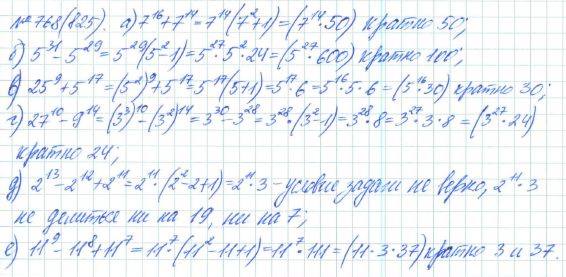 №768(825). а) 7¹⁶+7¹⁴=7¹⁴(7²+1)=(7¹⁴·50) кратно 50;
б) 5³¹-5²⁹=5²⁹(5²-1)=5²⁷·5²·24=(5²⁷·600) кратно 100;
в) 25⁹+5¹⁷=(5²)⁹+5¹⁷=5¹⁷(5+1)=5¹⁷·6=5¹⁶·5·6=(5¹⁶·30) кратно 30;
г) 27¹⁰-9¹⁴=(3³)¹⁰-(3²)¹⁴=3³⁰-3²⁸=3²⁸·(3²-1)=3²⁸·8=3²⁷·3·8=(3²⁷·24)
кратно 24;
д) 2¹³-2¹²+2¹¹=2¹¹·(2²-2+1)=2¹¹·3-условие задачи не верно, 2¹¹·3
не делиться ни на 19, ни на 7;
е) 11⁹-11⁸+11⁷=11⁷·(11²-11+1)=11⁷·111=(11·3·37) кратно 3 и 37.